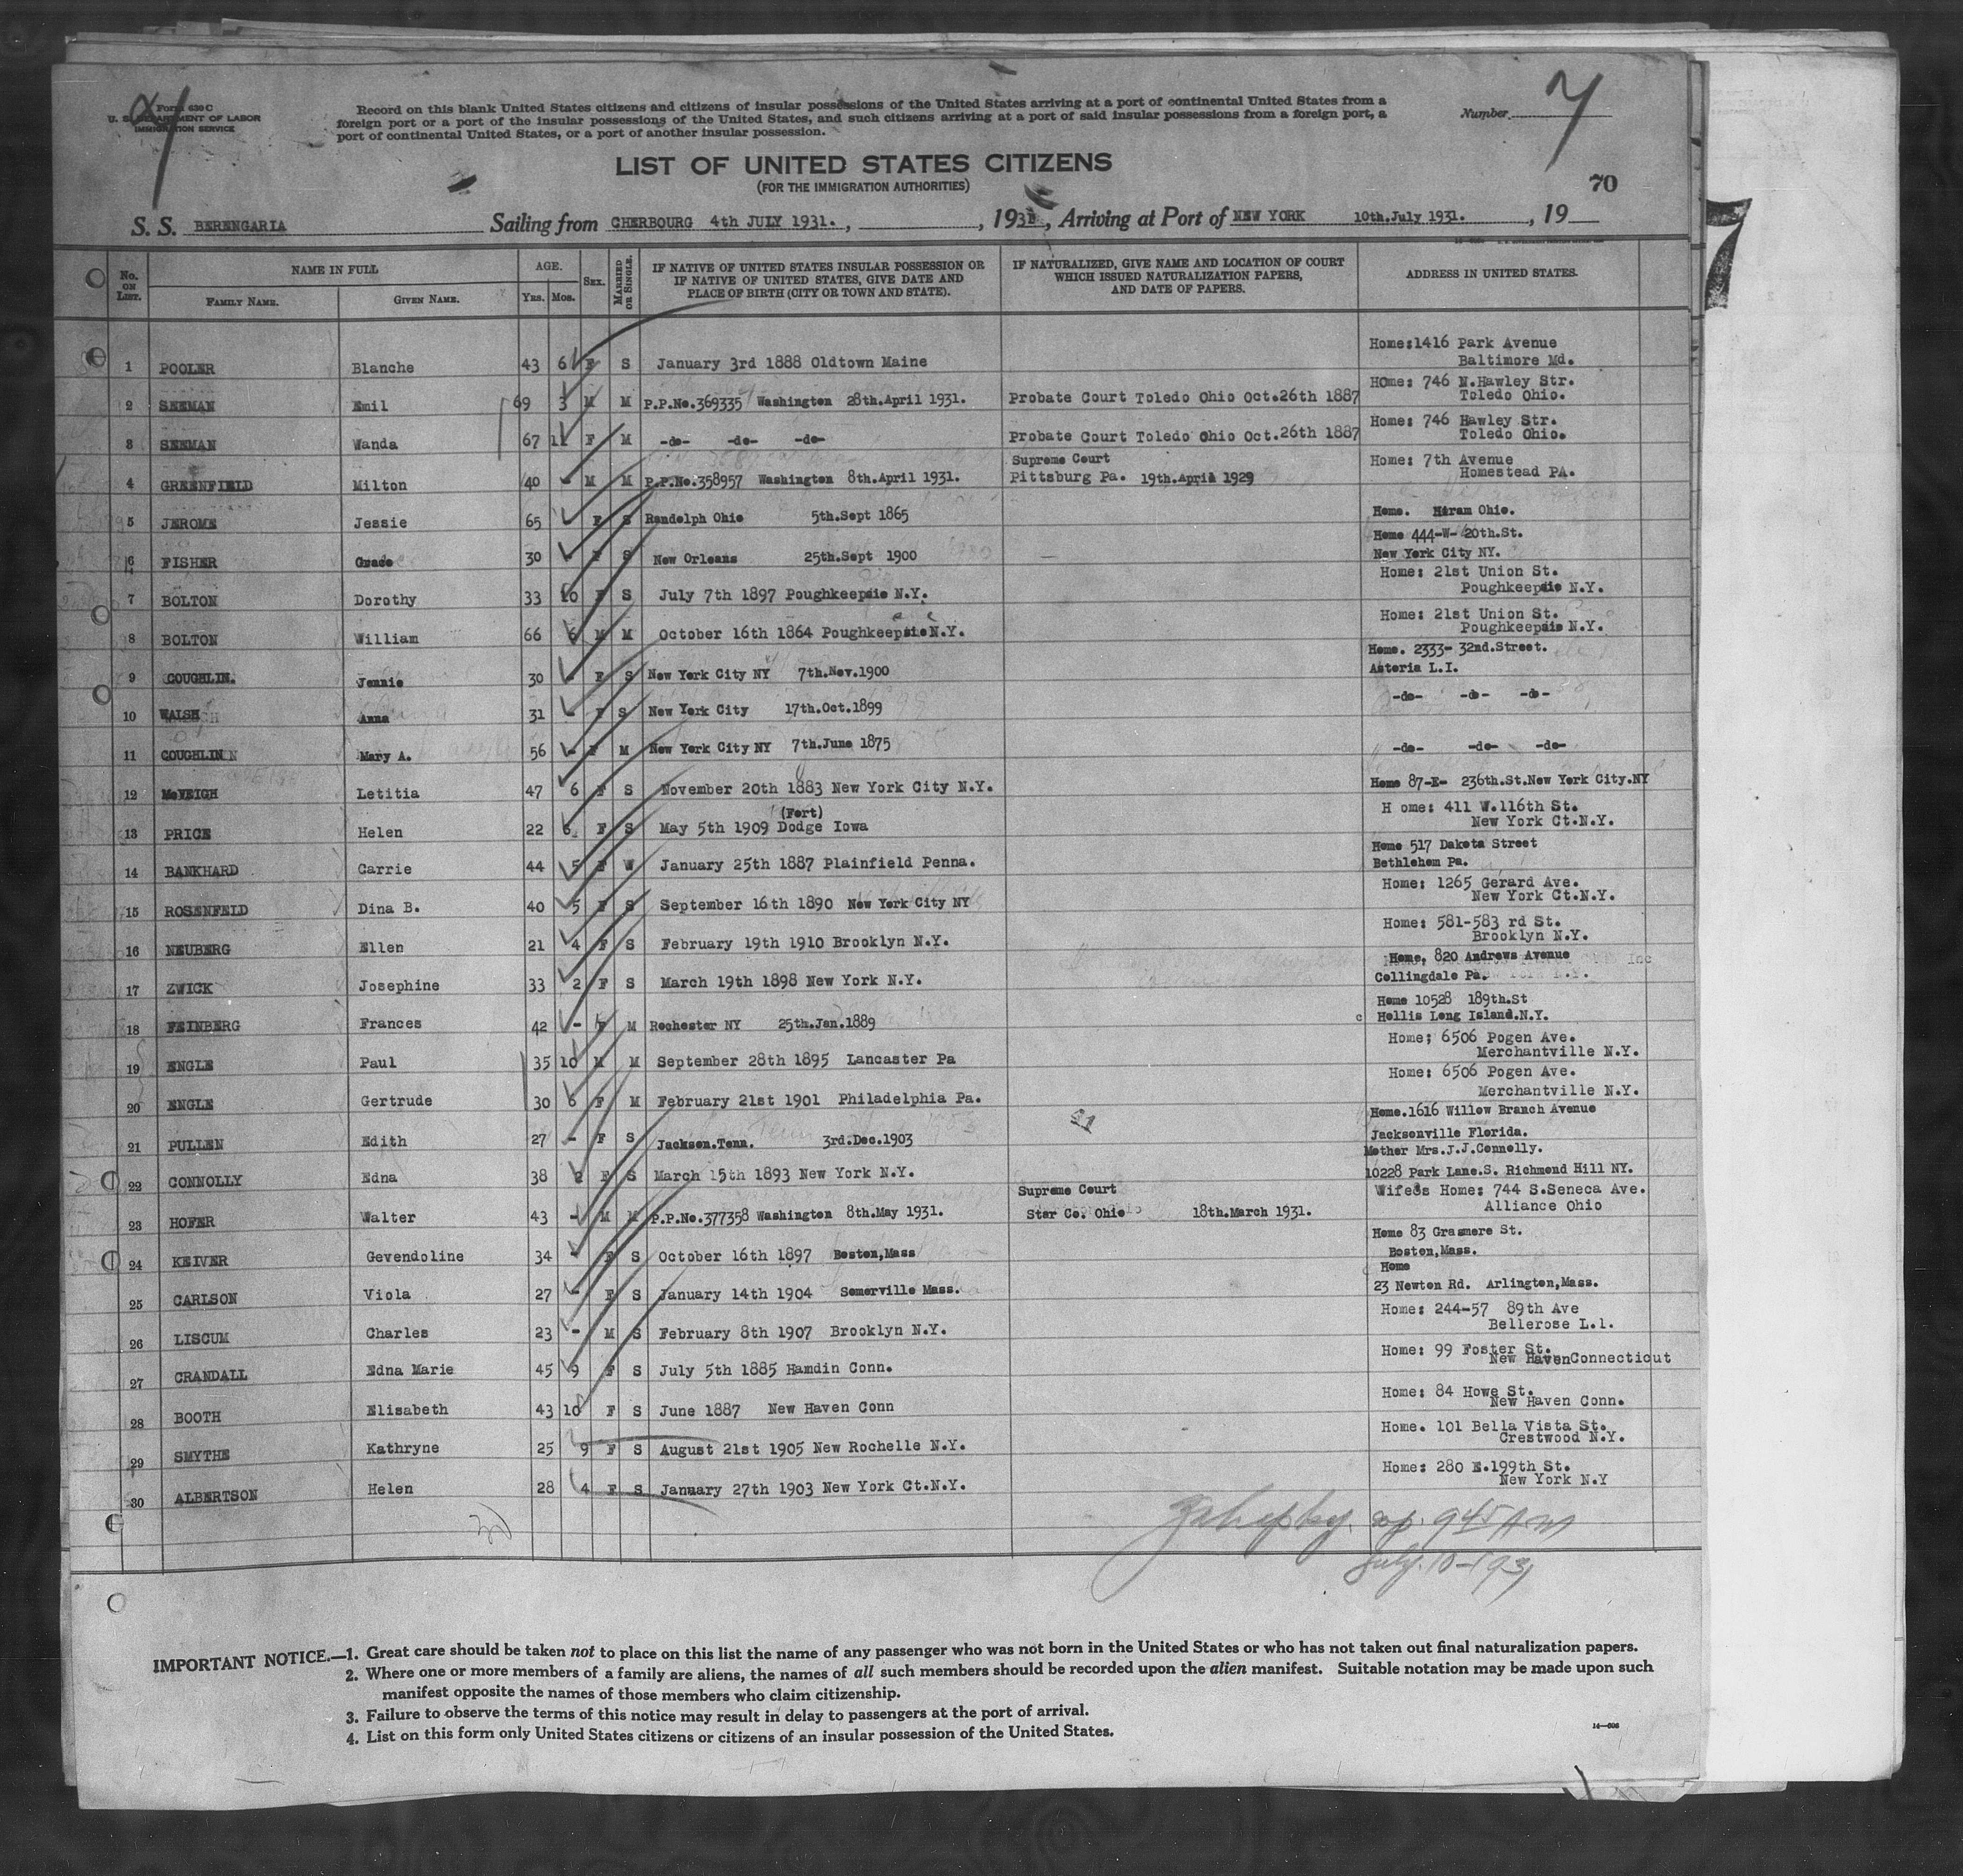 Form 630 C
U. S. DEPARTMENT OF LABOR
IMMIGRATION SERVICE
Record on this blank United States citizens and citizens of insular possessions of the United States arriving at a port of continental United States from a
foreign port or a port of the insular possessions of the United States, and such citizens arriving at a port of said insular possessions from a foreign port, a
port of continental United States, or a port of another insular possession.
Number 7
LIST OF UNITED STATES CITIZENS
(FOR THE IMMIGRATION AUTHORITIES)
70
S. S. BERENGARIA Sailing from CHERBOURG 4th JULY 1931. , , 1931, Arriving at Port of NEW YORK 10th.July 1931. , 19
No. ON LIST. NAME IN FULL AGE. SEX. MARRIED OR SINGLE. IF NATIVE OF UNITED STATES INSULAR POSSESSION OR IF NATIVE OF UNITED STATES, GIVE DATE AND PLACE OF BIRTH (CITY OR TOWN AND STATE). IF NATURALIZED, GIVE NAME AND LOCATION OF COURT WHICH ISSUED NATURALIZATION PAPERS, AND DATE OF PAPERS. ADDRESS IN UNITED STATES.
FAMILY NAME. GIVEN NAME. Yrs. Mos.
Home:1416 Park Avenue
1 POOLER Blanche 43 6 F S January 3rd 1888 Oldtown Maine Baltimore Md.
HOme: 746 N.Hawley Str.
2 SEEMAN Emil 69 3 M M P.P.No.369335 Washington 28th.April 1931. Probate Court Toledo Ohio Oct.26th 1887 Toledo Ohio.
Home: 746 Hawley Str.
3 SEEMAN Wanda 67 11 F M -do- -do- -do- Probate Court Toledo Ohio Oct.26th 1887 Toledo Ohio.
Supreme Court Home: 7th Avenue
4 GREENFIELD Milton 40 - M M P.P.No.358957 Washington 8th.April 1931. Pittsburg Pa. 19th.April 1929 Homestead PA.
5 JEROME Jessie 65 F S Randolph Ohio 5th.Sept 1865 Home. Hiram Ohio.
Home 444-W- 20th.St.
6 FISHER Grace 30 - F S New Orleans 25th.Sept 1900 New York City NY.
Home: 21st Union St.
7 BOLTON Dorothy 33 10 F S July 7th 1897 Poughkeepsie N.Y. Poughkeepsie N.Y.
Home: 21st Union St.
8 BOLTON William 66 6 M M October 16th 1864 Poughkeepsie N.Y. Poughkeepsie N.Y.
Home. 2333- 32nd.Street.
9 COUGHLIN. Jennie 30 - F S New York City NY 7th.Nov.1900 Astoria L.I.
10 WALSH Anna 31 - F S New York City 17th.Oct.1899 -do- -do- -do-
11 COUGHLIN Mary A. 56 - F M New York City NY 7th.June 1875 -do- -do- -do-
12 McVEIGH Letitia 47 6 F S November 20th 1883 New York City N.Y. Home 87-E- 236th.St.New York City.NY
(Fort) H ome: 411 W.116th St.
13 PRICE Helen 22 6 F S May 5th 1909 Dodge Iowa New York Ct.N.Y.
Home 517 Dakota Street
14 BANKHARD Carrie 44 5 F W January 25th 1887 Plainfield Penna. Bethlehem Pa.
Home: 1265 Gerard Ave.
15 ROSENFELD Dina B. 40 5 F S September 16th 1890 New York City NY New York Ct.N.Y.
Home: 581-583 rd St.
16 NEUBERG Ellen 21 4 F S February 19th 1910 Brooklyn N.Y. Brooklyn N.Y.
Home. 820 Andrews Avenue
17 ZWICK Josephine 33 2 F S March 19th 1898 New York N.Y. Collingdale Pa.
Home 10528 189th.St
18 FEINBERG Frances 42 - F M Rochester NY 25th.Jan.1889 Hollis Long Island.N.Y.
Home; 6506 Pogen Ave.
19 ENGLE Paul 35 10 M M September 28th 1895 Lancaster Pa Merchantville N.Y.
Home: 6506 Pogen Ave.
20 ENGLE Gertrude 30 6 F M February 21st 1901 Philadelphia Pa. Merchantville N.Y.
Home.1616 Willow Branch Avenue
21 PULLEN Edith 27 - F S Jackson.Tenn. 3rd.Dec.1903 Jacksonville Florida.
Mother Mrs.J.J.Connolly.
22 CONNOLLY Edna 38 2 F S March 15th 1893 New York N.Y. 10228 Park Lane.S. Richmond Hill NY.
Supreme Court Wifees Home: 744 S.Seneca Ave.
23 HOFER Walter 43 - M M P.P.No.377358 Washington 8th.May 1931. Star Co. Ohio 18th.March 1931. Alliance Ohio
Home 83 Grasmere St.
24 KEIVER Gevendoline 34 - F S October 16th 1897 Boston,Mass Boston,Mass.
Home
25 CARLSON Viola 27 - F S January 14th 1904 Somerville Mass. 23 Newton Rd. Arlington,Mass.
Home: 244-57 89th Ave
26 LISCUM Charles 23 - M S February 8th 1907 Brooklyn N.Y. Bellerose L.l.
Home: 99 Foster St.
27 CRANDALL Edna Marie 45 9 F S July 5th 1885 Hamdin Conn. New HavenConnecticut
Home: 84 Howe St.
28 BOOTH Elisabeth 43 10 F S June 1887 New Haven Conn New Haven Conn.
Home. 101 Bella Vista St.
29 SMYTHE Kathryne 25 9 F S August 21st 1905 New Rochelle N.Y. Crestwood N.Y.
Home: 280 E.199th St.
30 ALBERTSON Helen 28 4 F S January 27th 1903 New York Ct.N.Y. New York N.Y
30
945 AM
July.10-1931
IMPORTANT NOTICE.—1. Great care should be taken not to place on this list the name of any passenger who was not born in the United States or who has not taken out final naturalization papers.
2. Where one or more members of a family are aliens, the names of all such members should be recorded upon the alien manifest. Suitable notation may be made upon such
manifest opposite the names of those members who claim citizenship.
3. Failure to observe the terms of this notice may result in delay to passengers at the port of arrival.
4. List on this form only United States citizens or citizens of an insular possession of the United States.